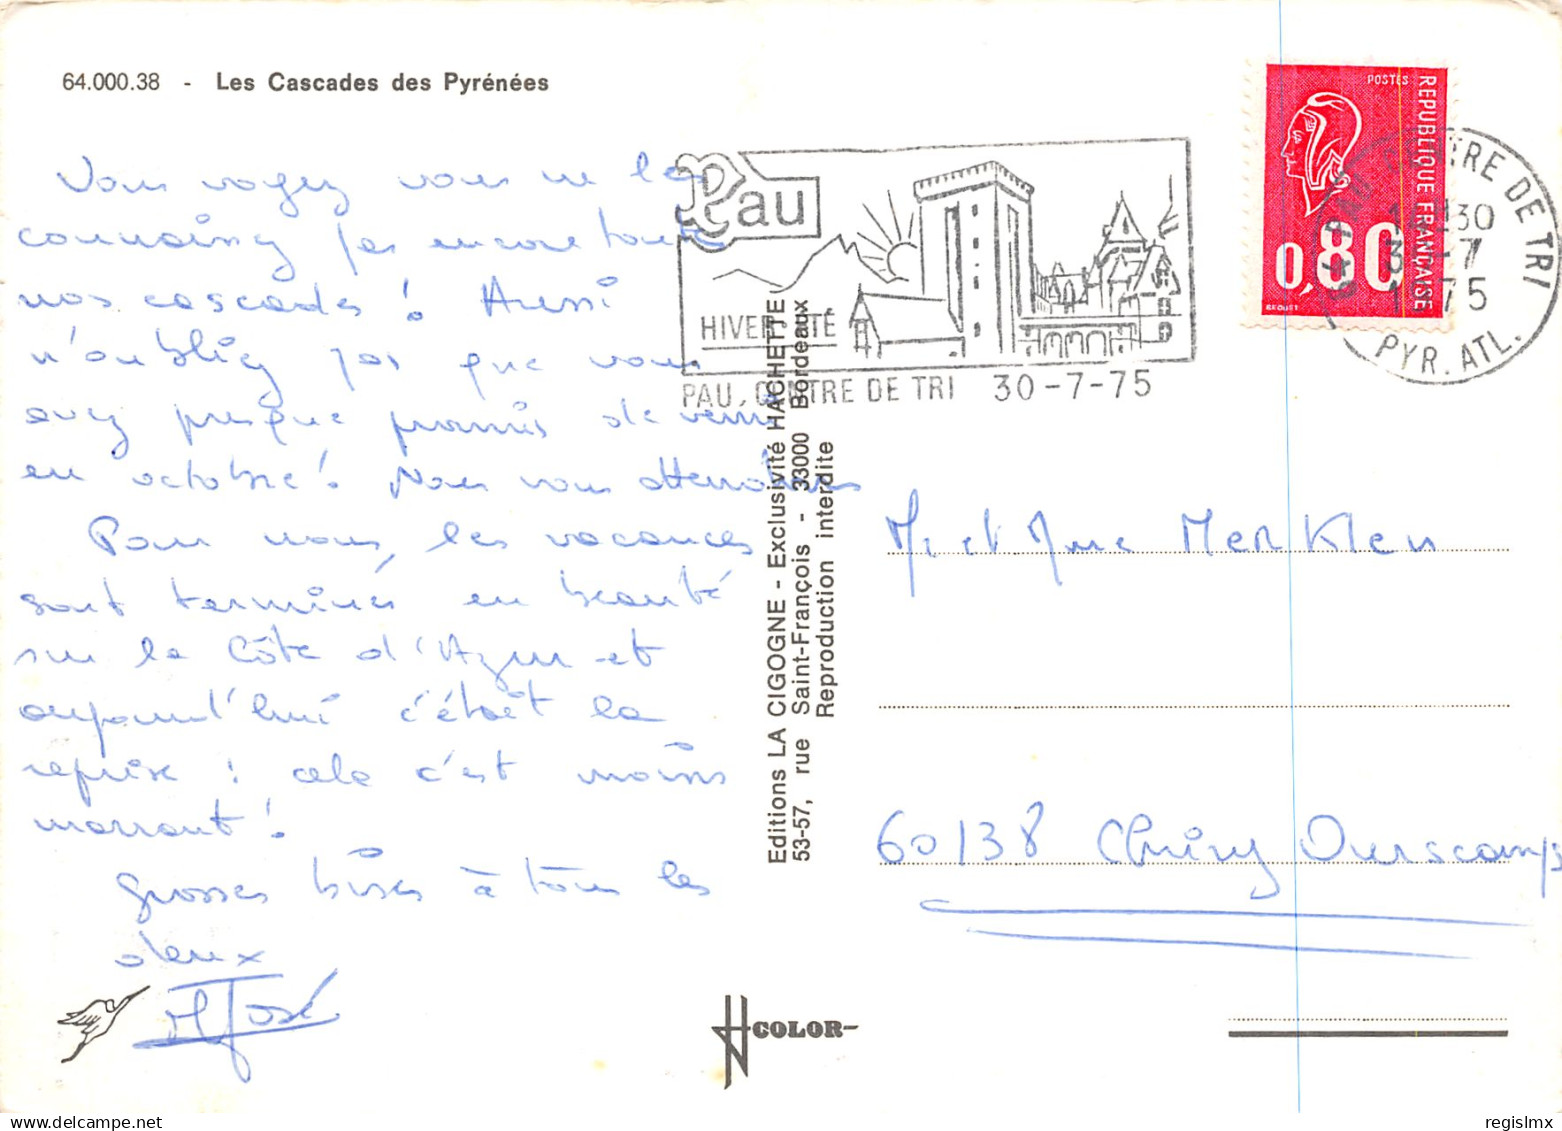 64.000.38 - Les Cascades des Pyrénées
Vous voyez vous ne les
connaissez pas encore toutes
nos cascades ! Aussi
n'oubliez pas que vous
avez presque promis de venir
en octobre ! Nous vous attendons
Pour nous, les vacances
sont terminés en beauté
sur la Côte d'Azur et
aujourd'hui c'était la
reprise ! cela c'est moins
marrant !
grosses bises à tous les
deux
M José
Pau
HIVER ETÉ
PAU, CENTRE DE TRI 30-7-75
POSTES
REPUBLIQUE FRANÇAISE
0,80
BEQUET
64 PAU CENTRE DE TRI
30-7
1975
PYR. ATL.
Editions LA CIGOGNE - Exclusivité HACHETTE
53-57, rue Saint-François - 33000 Bordeaux
Reproduction interdite
M. et Mme Merklen
60138 Chiry Ourscamps
COLOR
regislmx